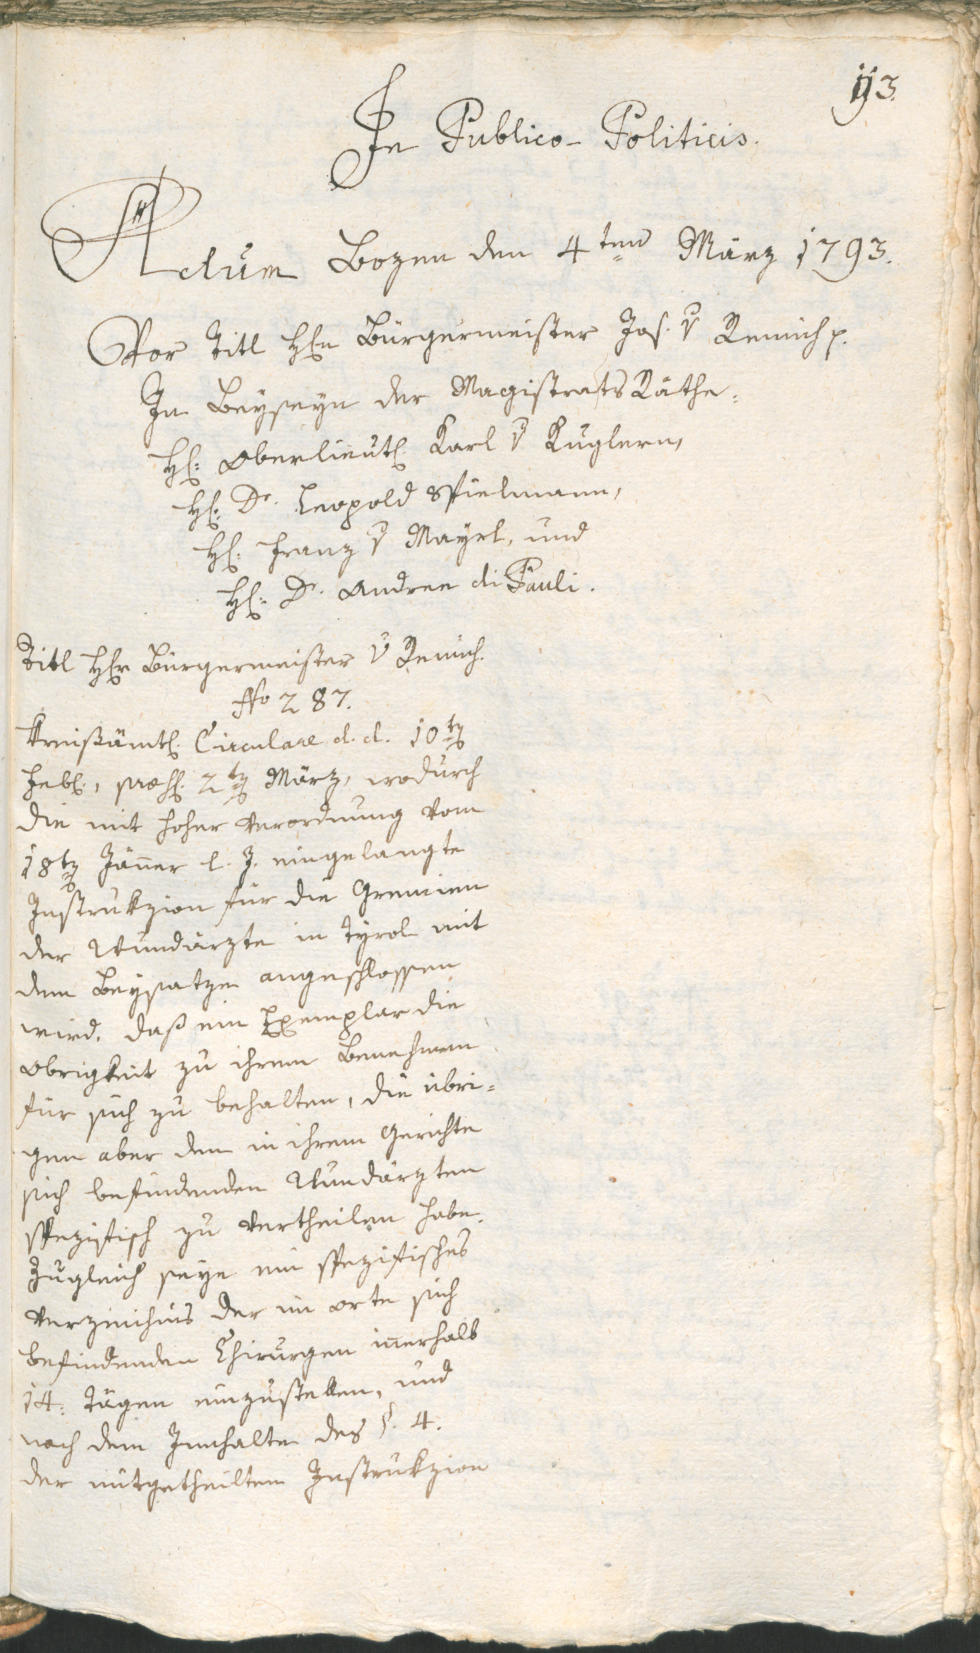 113.
In Publico-Politicis.
Actum Bozen den 4ten März 1793.
Vor Titl H:n Bürgermeister Jos. v Remich p.
In Beyseyn der MagistratsRäthe:
H: Oberlieut: Karl v Kuglern,
H: Dr. Leopold Spielmann,
H: Franz v Mayrl, und
H: Dr. Andree di Pauli.
Titl H:r Bürgermeister v Remich.
No 287.
Kreisämtl: Circulare d. d. 10t
Feb:, præs: 2t März, wodurch
die mit hoher Verordnung vom
18t Jäner l. J. eingelangte
Instrukzion für die Gremien
der Wundärzte in Tyrol mit
dem Beysatze angeschlossen
wird, daß ein Exemplar die
Obrigkeit zu ihrem Benehmen
für sich zu behalten, die übri-
gen aber den in ihrem Gerichte
sich befindenden Wundärzten
spezifisch zu vertheilen habe.
Zugleich seye ein spezifisches
Verzeichnis der im Orte sich
befindenden Chirurgen inerhalb
14: Tägen einzustellen, und
nach dem Innhalte des §. 4.
der mitgetheilten Instrukzion